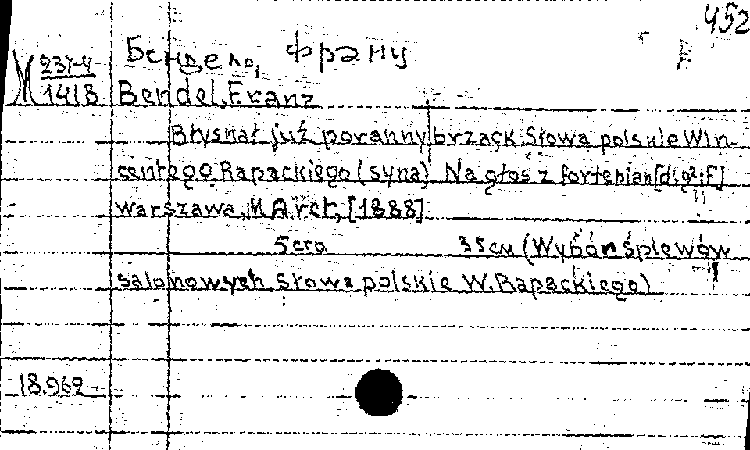 452
Бендель, Франц
М 237-4
1418 Bendel, Franz
Błysnął już poranny brzask. Słowa polskie Win-
centego Rapackiego (syna). Na głos z fortepian
Warszawa, M Arct, [1888]
5 стр 35 см (Wybór śpiewów
salonowych Słowa polskie W. Rapackiego)
18.969